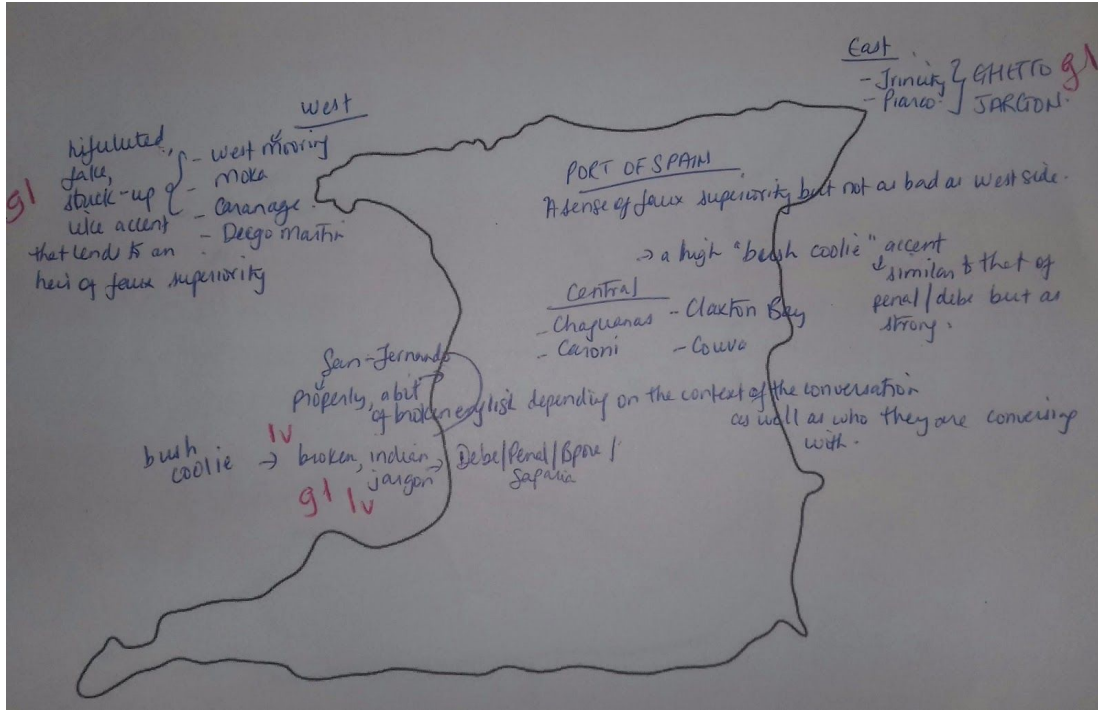 East
- Trincity } GHETTO g1
- Piarco } JARGON.
West
hifuluted, - West mooring
fake, - Moka
g1 stuck-up - Caranage.
like accent - Deego Martin
that lend to an
heir of faux superiority
PORT OF SPAIN
A sense of faux superiority but not as bad as West side.
→ a high "bush coolie" accent
↓ similar to that of
penal/debe but as
strong.
Central
- Chaguanas - Claxton Bay
- Caroni - Couva
San-Fernando
Properly, a bit
of broken english depending on the context of the conversation
as well as who they are conversing
with.
bush
coolie → lv broken, indian
jargon → Debe/Penal/Bpore/
Saparia
g1 lv